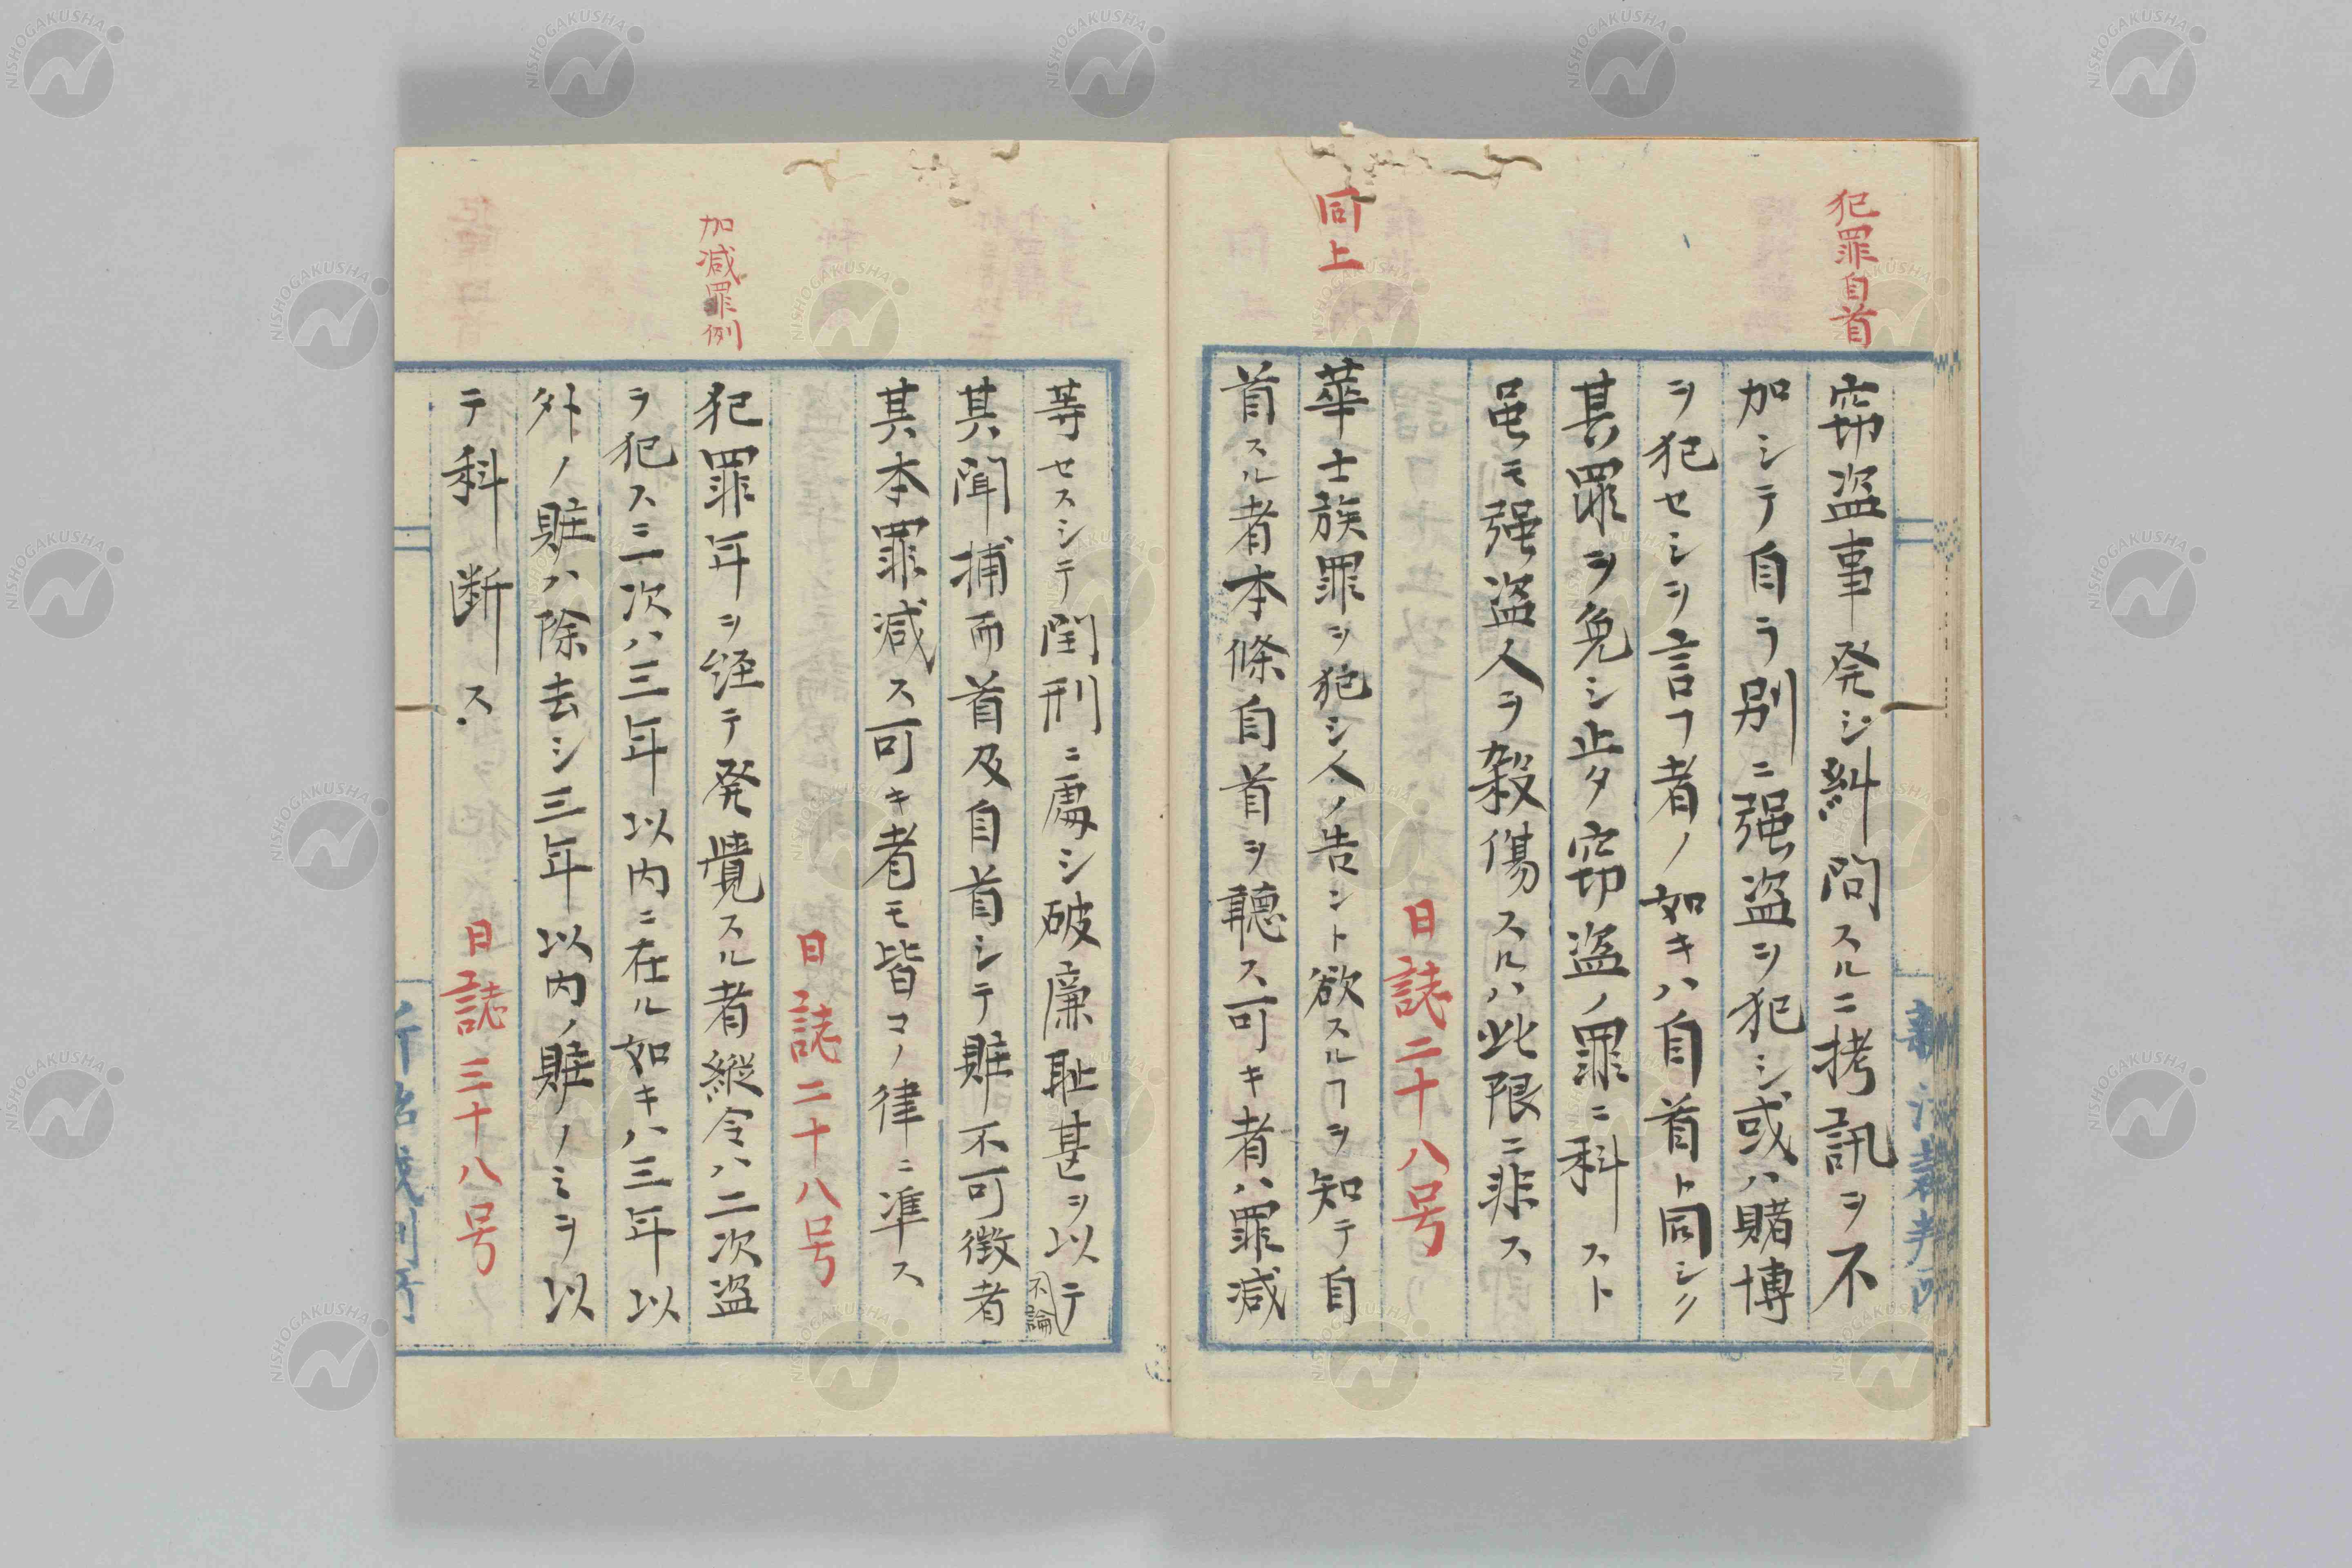 犯罪自首
窃盗事発シ糾問スルニ拷訊ヲ不
加シテ自ラ別ニ强盗ヲ犯シ或ハ賭博
ヲ犯セシヲ言フ者ノ如キハ自首ト同シク
其罪ヲ免シ止タ窃盗ノ罪ニ科スト
虽モ强盗人ヲ殺傷スルハ此限ニ非ス
日誌二十八号
同上
華士族罪ヲ犯シ人ノ告ント欲スルヿヲ知テ自
首スル者本條自首ヲ聽ス可キ者ハ罪減
等セスシテ閏刑ニ處シ破廉耻甚ヲ以テ
不論
其聞捕而首及自首シテ賍不可徴者
其本罪減ス可キ者モ皆コノ律ニ準ス
日誌二十八号
加减罪例
犯罪年ヲ経テ発覺スル者縦令ハ二次盗
ヲ犯ス三一次ハ三年以内ニ在ル如キハ三年以
外ノ賍ハ除去シ三年以内ノ賍ノミヲ以
テ科断ス
日誌三十八号
NISHOGAKUSHA